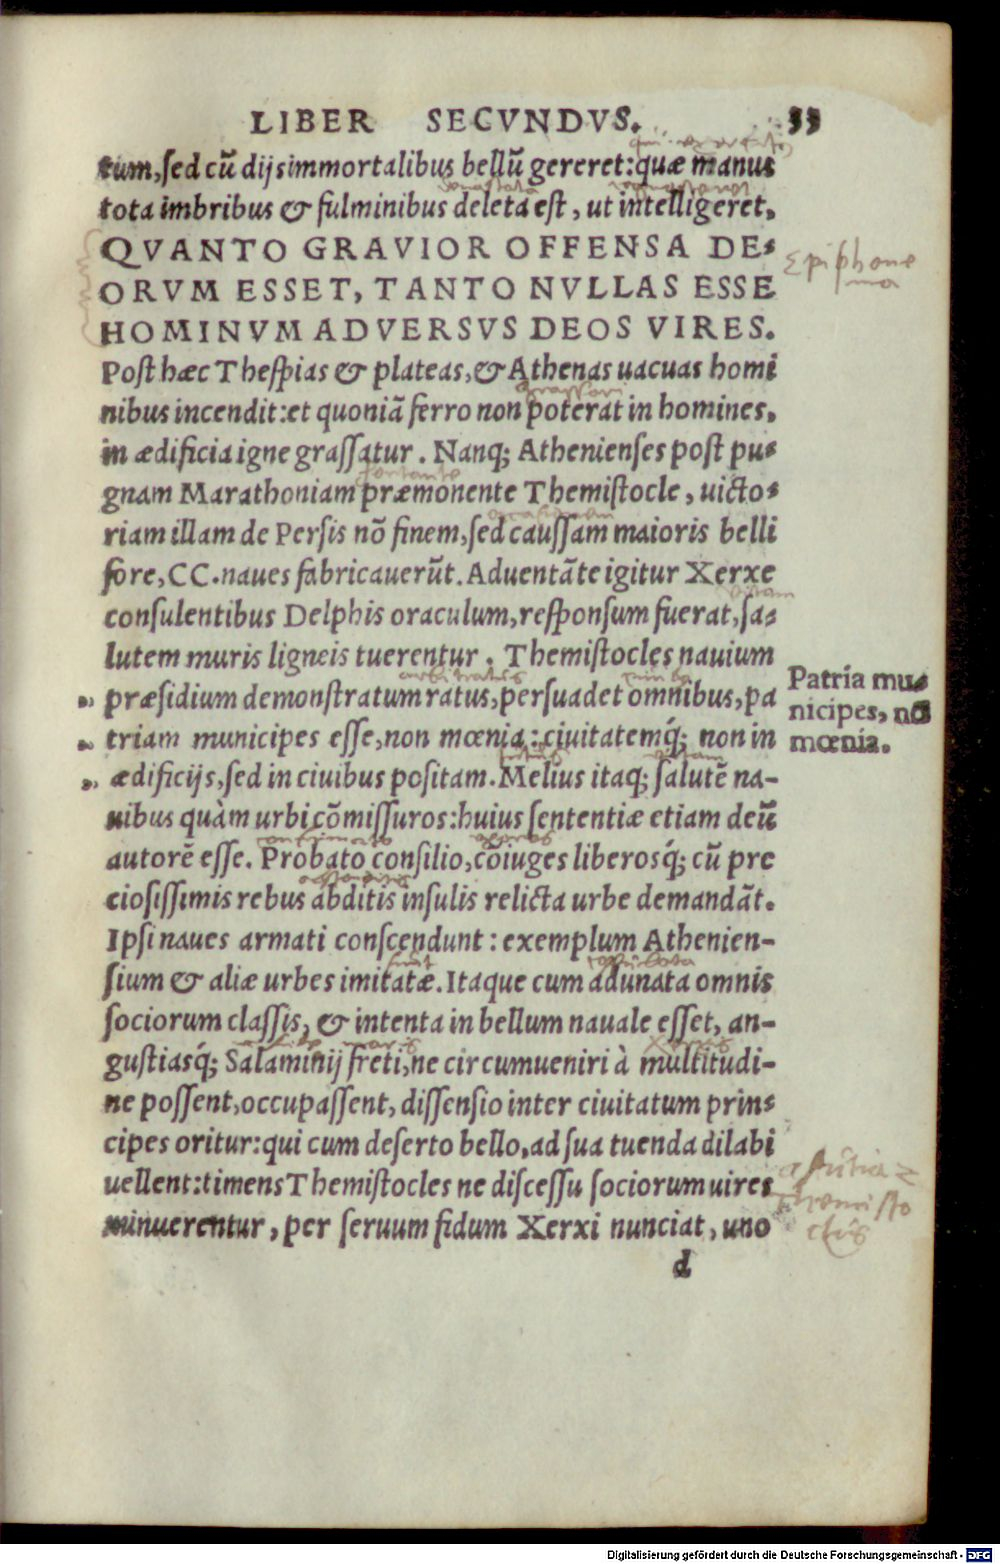 LIBER SECVNDVS. 33
tum, sed cū dijs immortalibus bellū gereret: quæ manus
tota imbribus & fulminibus deleta est, ut intelligeret,
QVANTO GRAVIOR OFFENSA DE-
ORVM ESSET, TANTO NVLLAS ESSE
HOMINVM ADVERSVS DEOS VIRES.
Epiphone
ma
Post hæc Thespias & plateas, & Athenas uacuas homi
nibus incendit: et quoniā ferro non poterat in homines,
in ædificia igne grassatur. Nanq; Athenienses post pu-
gnam Marathoniam præmonente Themistocle, uicto-
riam illam de Persis nō finem, sed caussam maioris belli
fore, CC. naues fabricauerūt. Aduentāte igitur Xerxe
consulentibus Delphis oraculum, responsum fuerat, sa-
lutem muris ligneis tuerentur. Themistocles nauium
præsidium demonstratum ratus, persuadet omnibus, pa
triam municipes esse, non mœnia: ciuitatemq́; non in
ædificijs, sed in ciuibus positam. Melius itaq; salutē na-
Patria mu-
nicipes, nō
mœnia.
uibus quàm urbi cōmissuros: huius sententiæ etiam deū
autorē esse. Probato consilio, cōiuges liberosq́; cū pre
ciosissimis rebus abditis insulis relicta urbe demandāt.
Ipsi naues armati conscendunt: exemplum Athenien-
sium & aliæ urbes imitatæ. Itaque cum adunata omnis
sociorum classis, & intenta in bellum nauale esset, an-
gustiasq́; Salaminij freti, ne circumueniri à multitudi-
ne possent, occupassent, dissensio inter ciuitatum prin-
cipes oritur: qui cum deserto bello, ad sua tuenda dilabi
uellent: timens Themistocles ne discessu sociorum uires
minuerentur, per seruum fidum Xerxi nunciat, uno
d
Digitalisierung gefördert durch die Deutsche Forschungsgemeinschaft - DFG